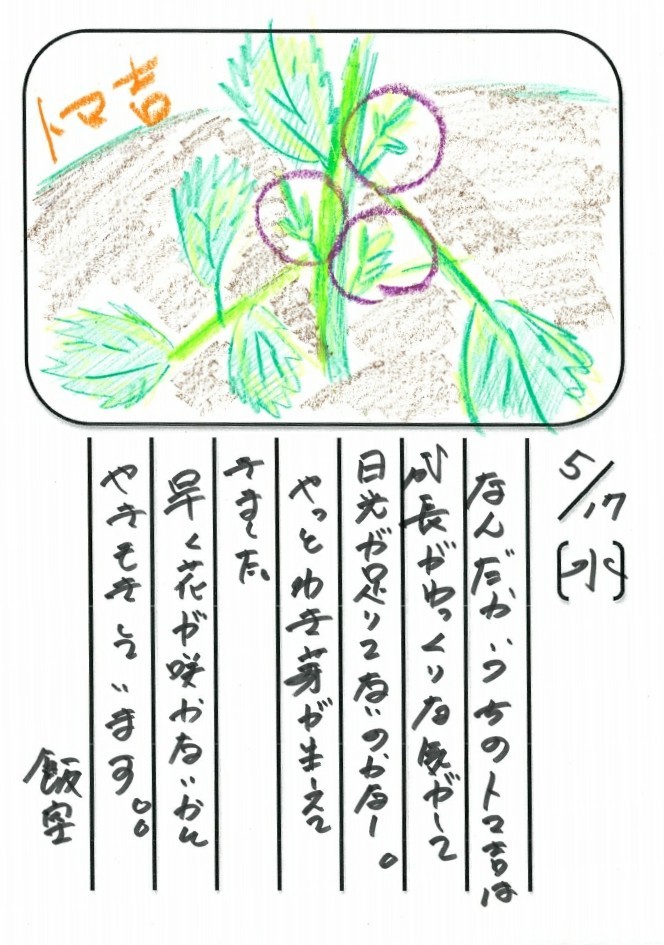 トマ吉
5/17(水)
なんだかいつちのトマ吉は
成長がゆっくりな気がして
日光が足りてないのかなー。
やっとわき芽が生えて
きました。
早く花が咲かないかと
やきもきしています。
飯室